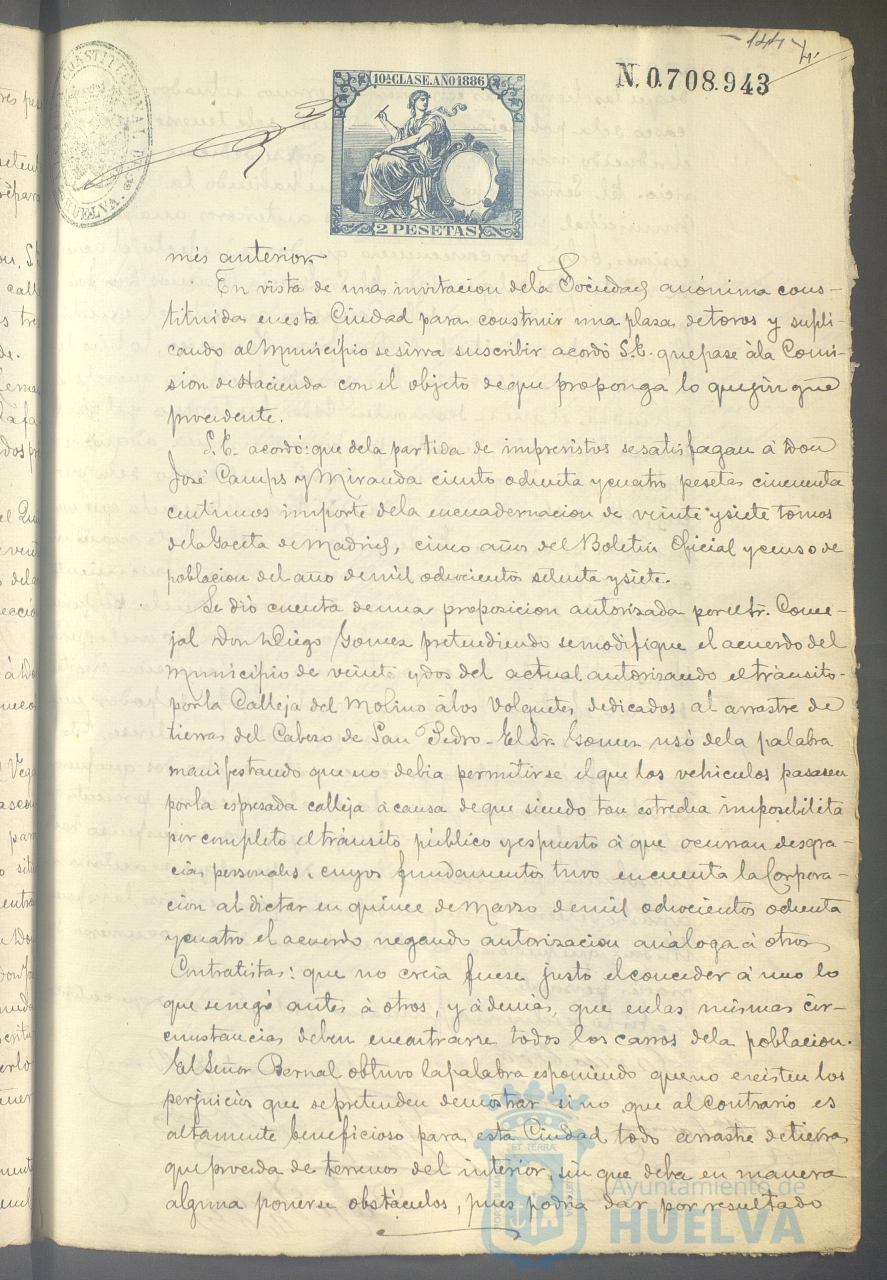 144
10ª CLASE. AÑO 1886
N. 0.708.943
CONSTITUCIONAL DE
HUELVA.
2 PESETAS
mes anterior.
En vista de una invitacion dela Sociedad anónima cons-
tituida enesta Ciudad para construir una plaza detoros y supli-
cando al Municipio sesirva suscribir acordó S.E. quepase ála Comi-
sion deHacienda con el objeto dequé proponga lo quejuzgue
procedente.
S.E. acordó: que dela partida de imprevistos sesatisfagan á Don
José Camps y Miranda ciento ochenta ycuatro pesetas cincuenta
centimos importe dela encuadernacion de veinte ysiete tomos
delaGaceta deMadrid, cinco años del Boletin Oficial ycenso de
poblacion del año demil ochocientos setenta ysiete.
Se dió cuenta deuna proposicion autorizada por el Sr. Conce-
jal Don Diego Gomez pretendiendo semodifique el acuerdo del
Municipio de veinte ydos del actual autorizando eltránsito
porla Calleja del Molino álos Volquetes dedicados al arrastre de
tierras del Cabezo de San Pedro - El Sr. Gomez usó dela palabra
manifestando que no debia permitirse el que los vehiculos pasasen
porla espresada calleja á causa de que siendo tan estrecha imposibilita
por completo eltránsito público yespuesto á que ocurran desgra-
cias personales, cuyos fundamentos tuvo encuenta laCorpora-
cion al dictar en quince deMarzo demil ochocientos ochenta
ycuatro el acuerdo negando autorizacion análoga á otros
Contratistas: que no creia fuese justo elconceder á uno lo
que senegó antes á otros, y ádemás, que enlas mismas cir-
cunstancias deben encontrarse todos los carros dela poblacion.
El Señor Bernal obtuvo lapalabra esponiendo queno existen los
perjuicios que sepretenden demostrar sino que alContrario es
altamente beneficioso para esta Ciudad todo arrastre detierras
que proceda de terrenos del interior, sin que deba en manera
alguna ponerse obstáculos, pues podria dar por resultado
Ayuntamiento de
HUELVA